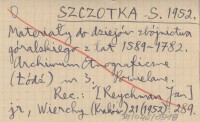 SZCZOTKA S. 1952.
Materiały do dziejów zbójnictwa
góralskiego z lat 1589-1782.
Archiwum Etnograficzne
(Łódź) nr 3. Powielane.
Rec.: [Reychman Jan]
jr, Wierchy (Kraków) 21 (1952): 289.